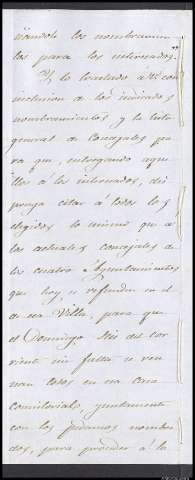 ñándole los nombramien
tos para los interesados."
Y lo traslado a V. con
inclusion de los indicados
nombramientos y la lista
general de Concejales pa
ra que, entregando aque
llos á los interesados, dis
ponga citar á todos los
elegidos lo mismo que a
los actuales concejales de
los cuatro Ayuntamientos
que hoy se refunden en el
de esa Villa, para que
el Domingo seis del cor
riente sin falta se reu
nan todos en esa Casa
consistorial, juntamente
con los pedaneos nombra
dos, para proceder á la